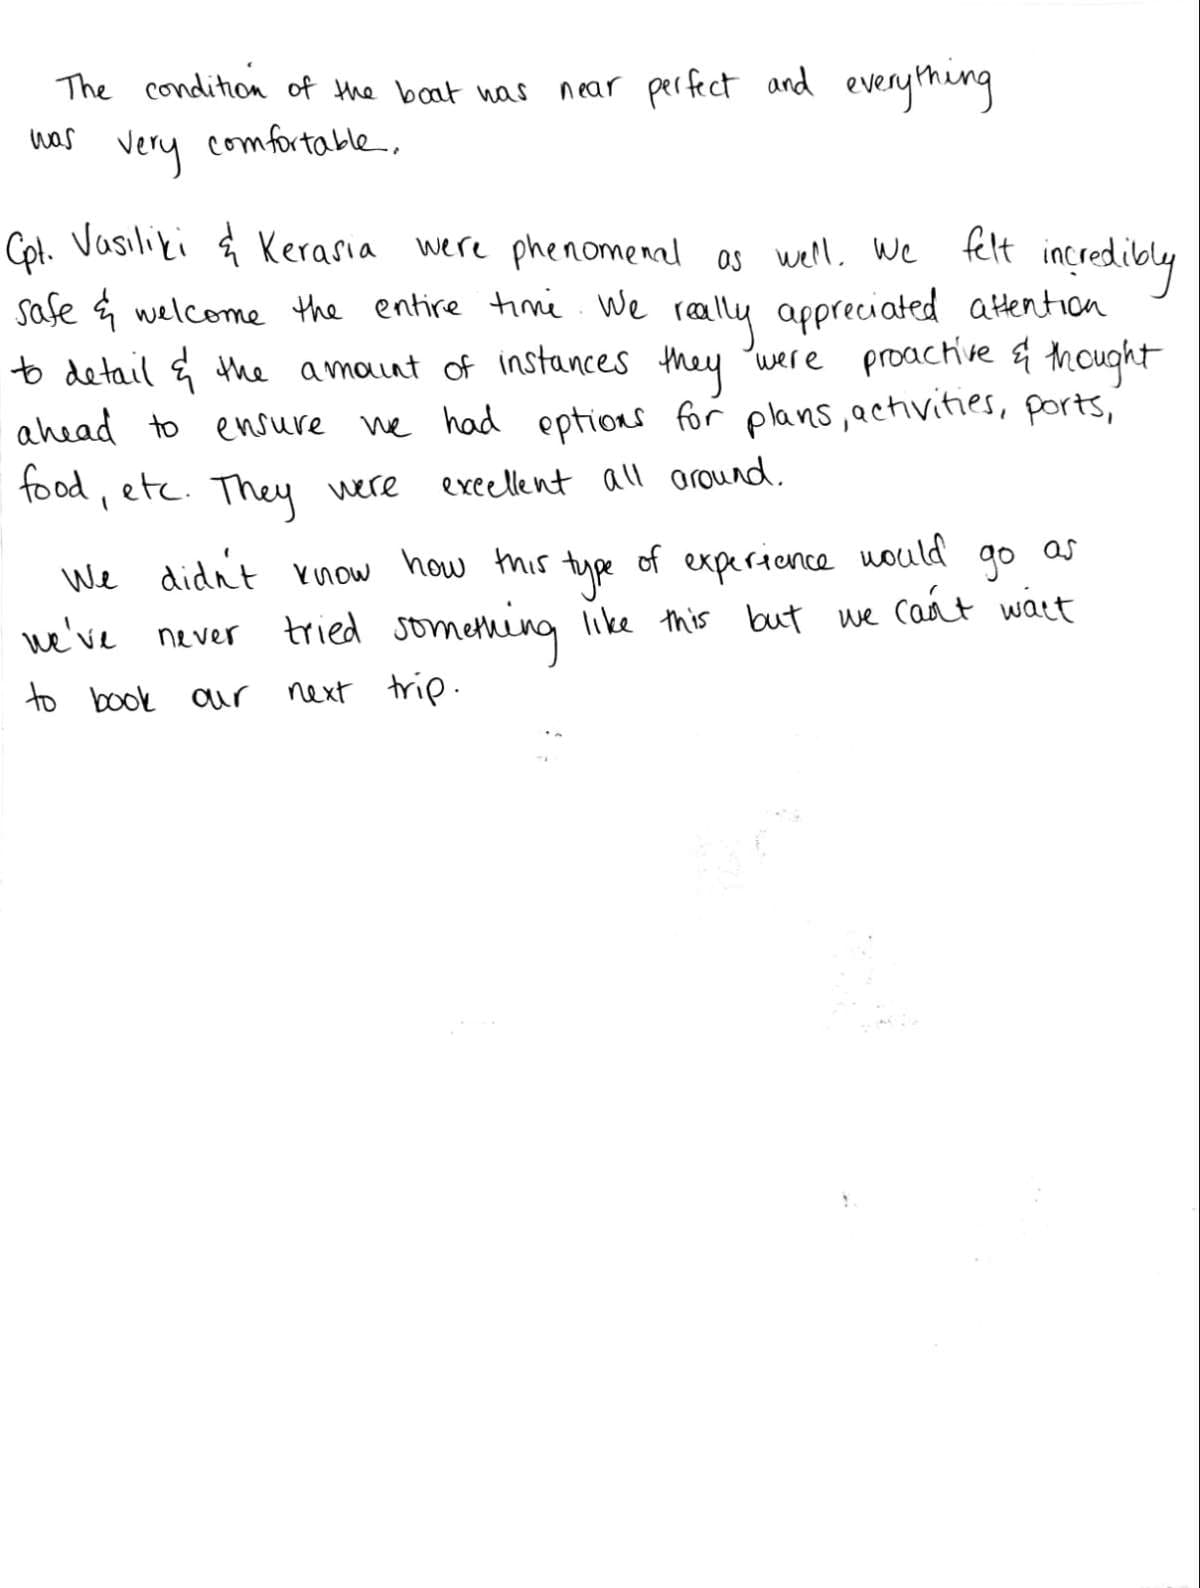 The condition of the boat was near perfect and everything
was very comfortable.
Cpt. Vasiliki & Kerasia were phenomenal as well. We felt incredibly
safe & welcome the entire time. We really appreciated attention
to detail & the amount of instances they were proactive & thought
ahead to ensure we had options for plans, activities, ports,
food, etc. They were excellent all around.
We didn't know how this type of experience would go as
we've never tried something like this but we can't wait
to book our next trip.